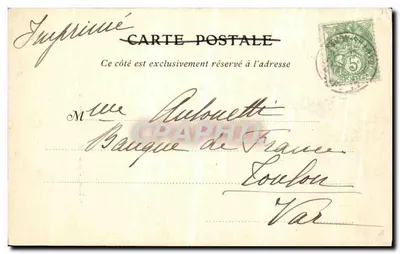 Imprimé
CARTE POSTALE
Ce côté est exclusivement réservé à l'adresse
Mme Antonetti
Banque de France
Toulon
Var
5